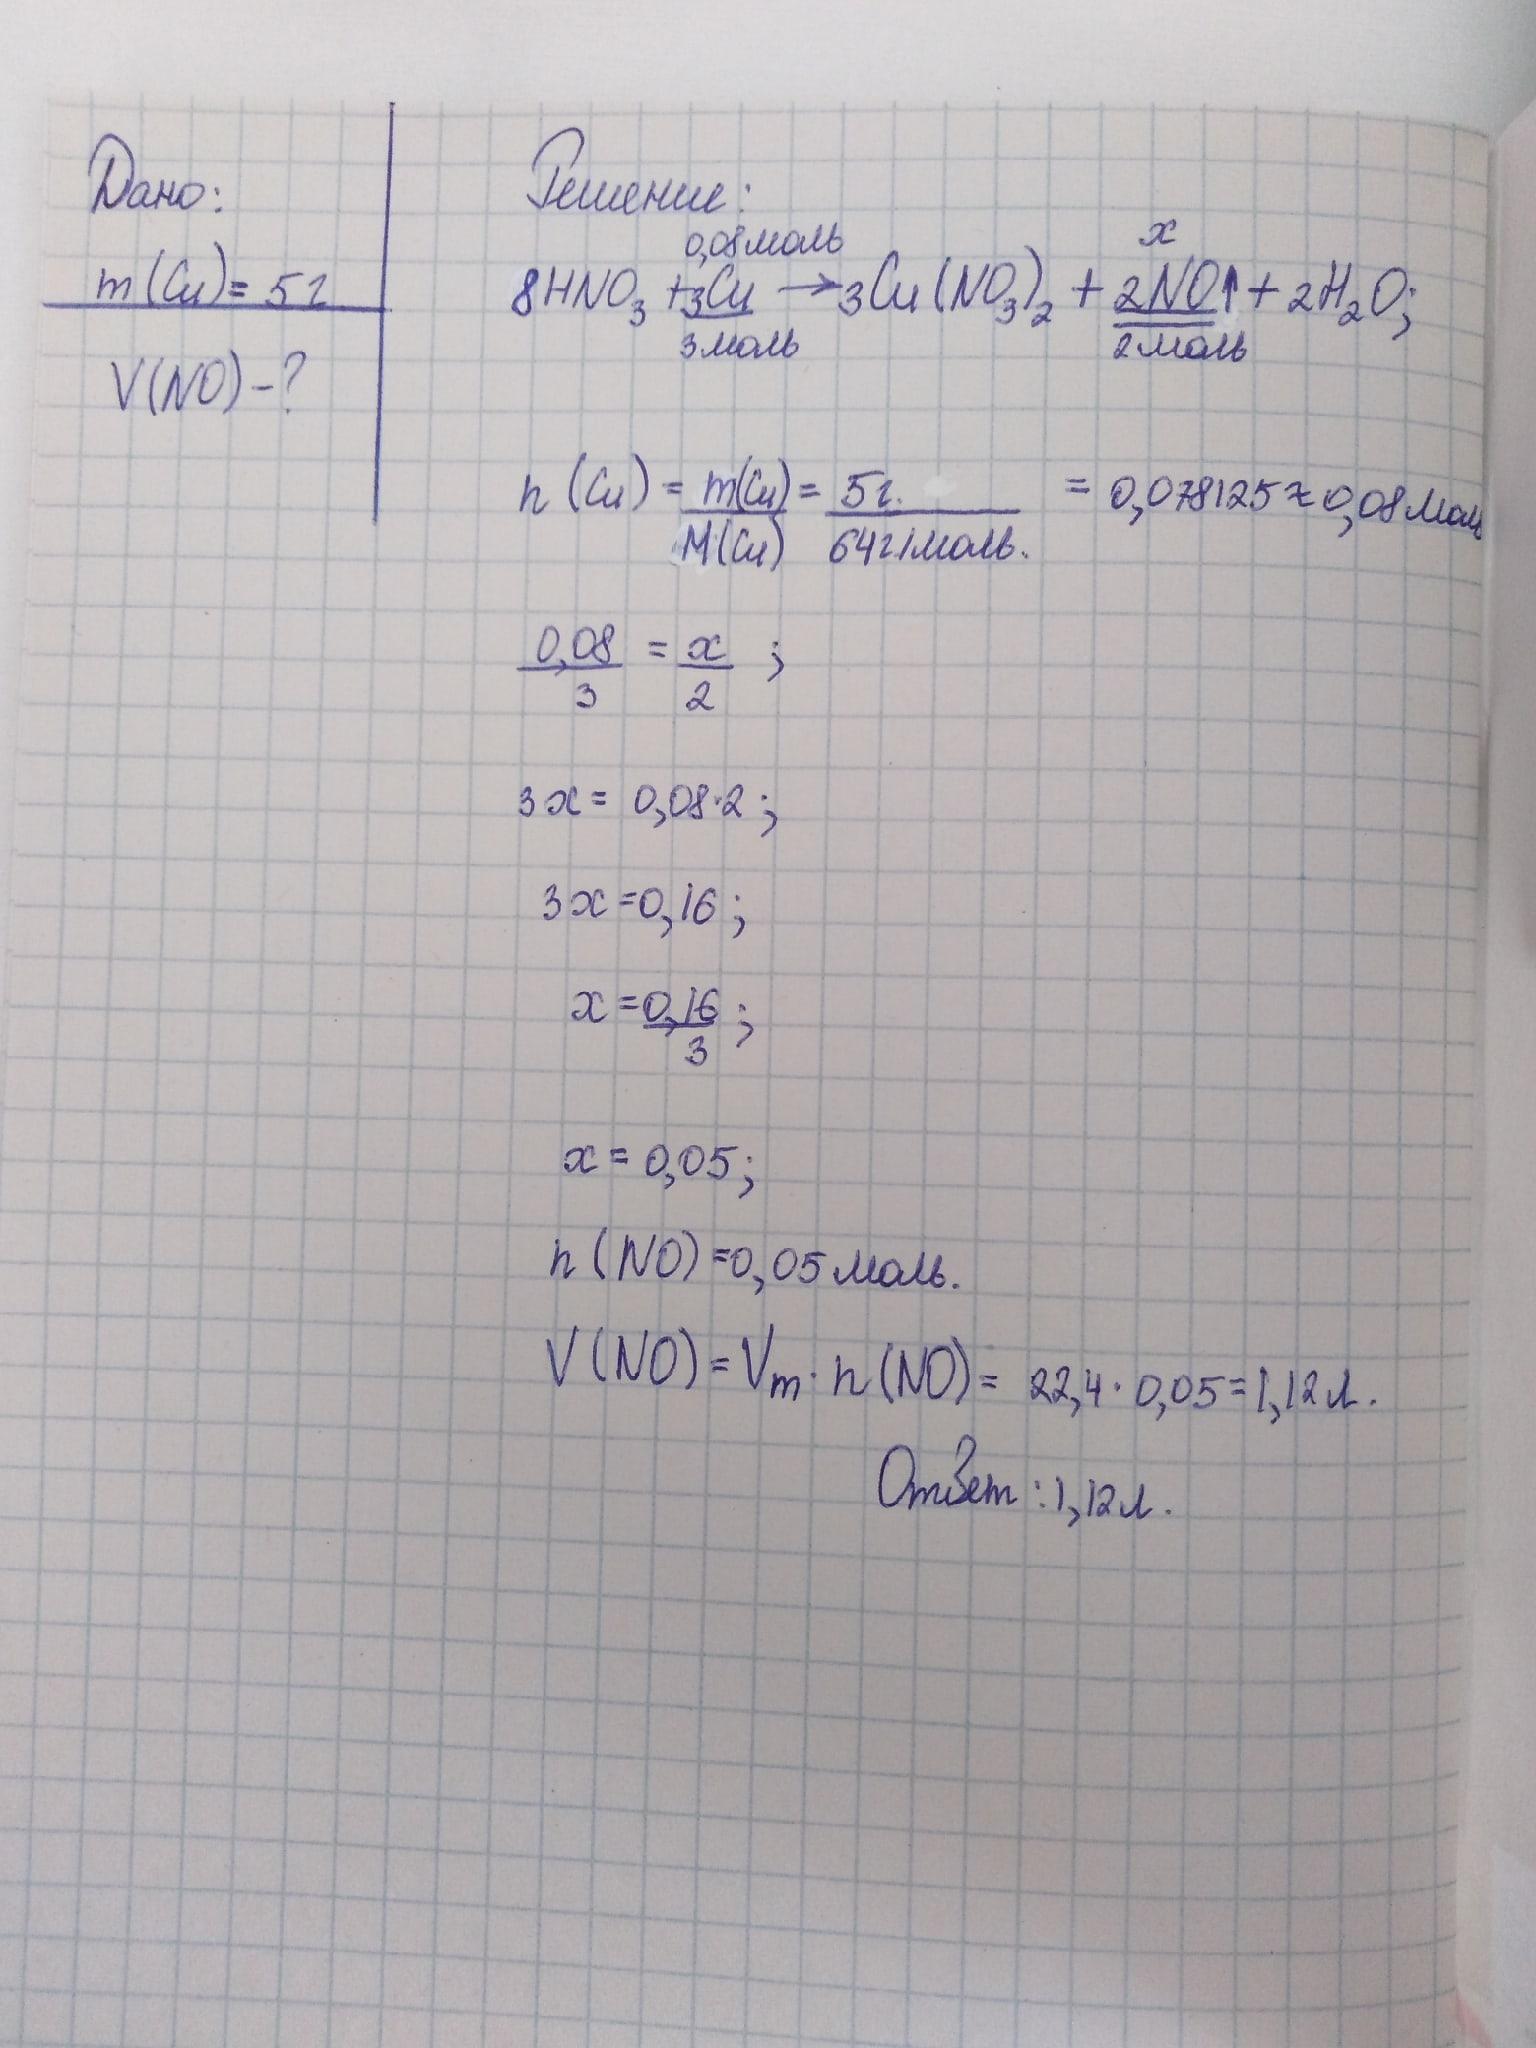 Дано:
m(Cu)= 5г
V(NO)-?
Решение:
0,08моль x
8HNO₃ +3Cu →3Cu(NO₃)₂ + 2NO↑ + 2H₂O;
3моль 2моль
n (Cu) = m(Cu)/M(Cu) = 5г./64г/моль. = 0,078125≈0,08моль
0,08/3 = x/2 ;
3x= 0,08·2;
3x=0,16;
x=0,16/3;
x= 0,05;
n(NO)=0,05моль.
V(NO)=Vm·n(NO)= 22,4·0,05=1,12л.
Ответ:1,12л.